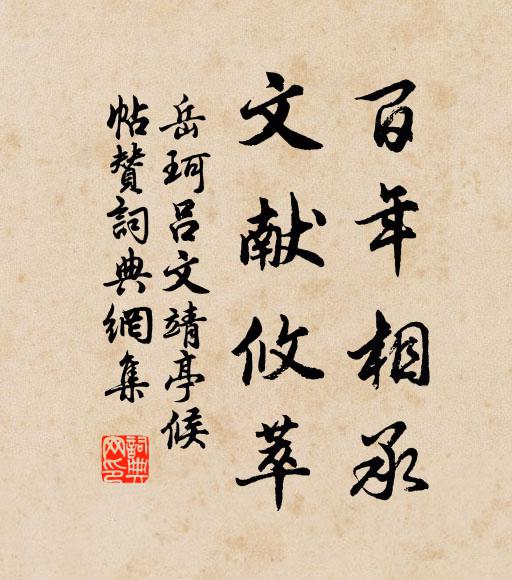 百年相承
文献攸萃
岳珂吕文靖亭候
帖赞詞典網集
詞典网印